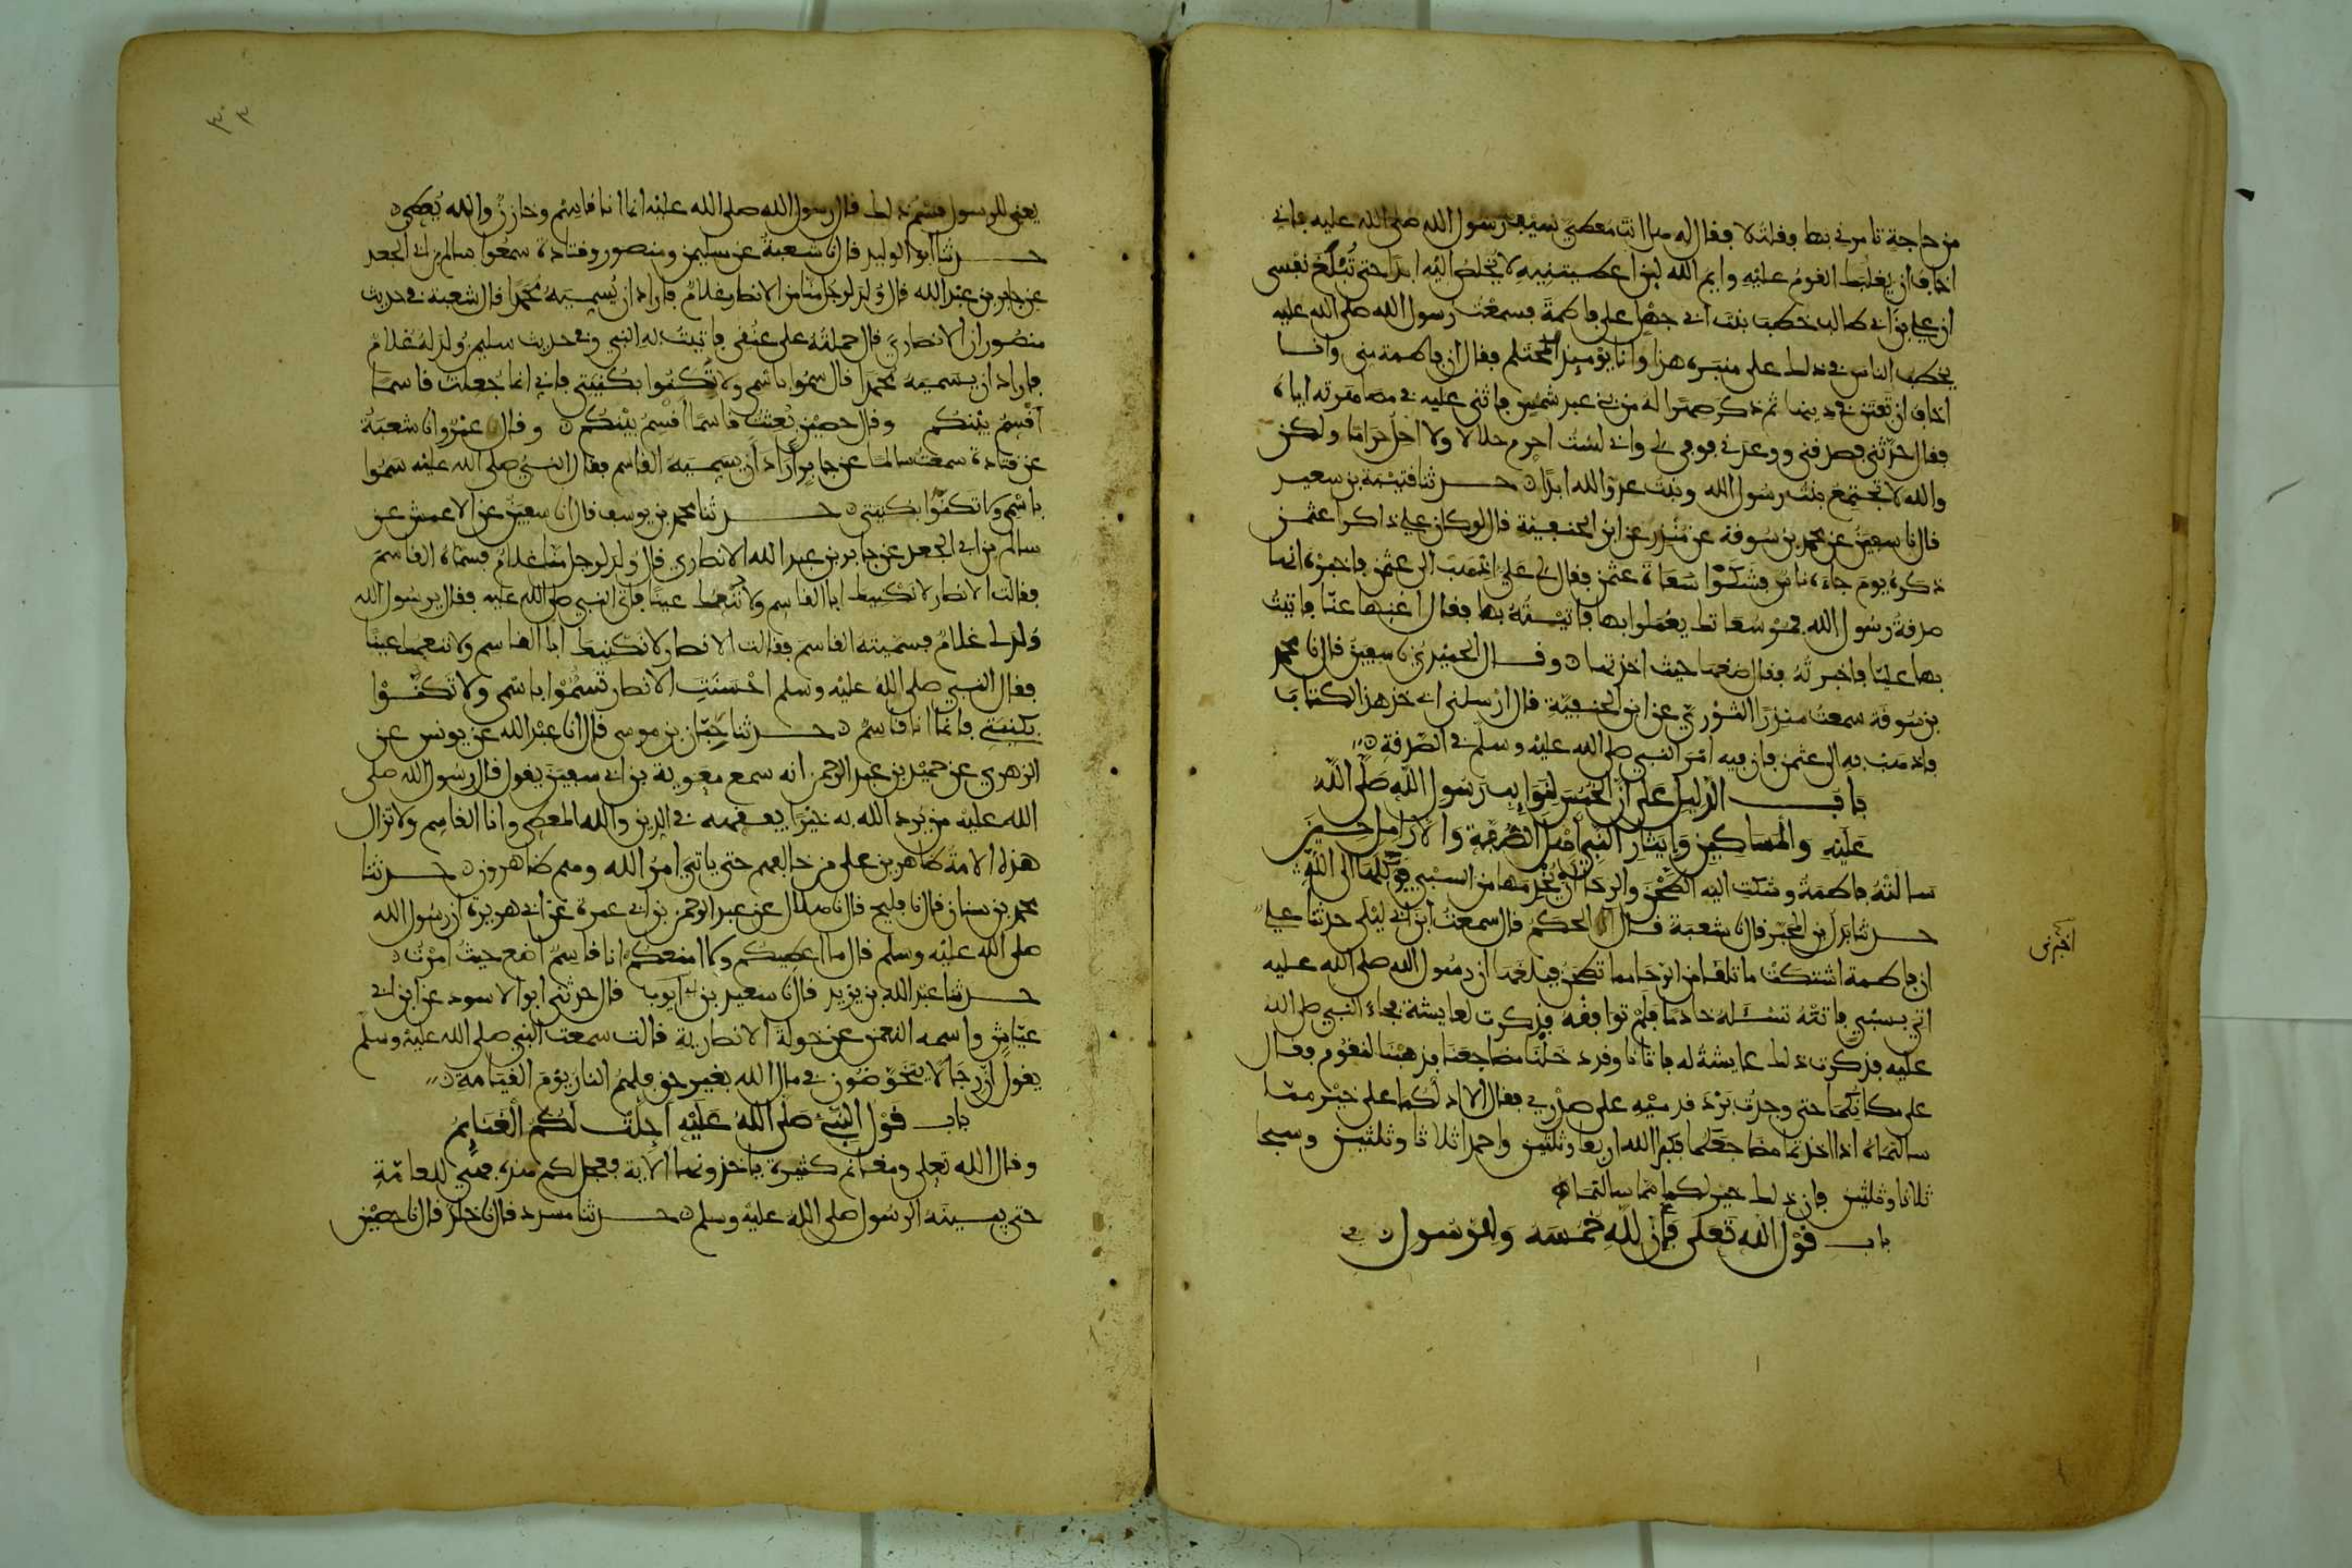 من حاجة تامرني بها فقلت لا فقال له هل انت معطي سيف رسول الله صلى الله عليه فاني
اخاف ان يغلبك القوم عليه وايم الله لين اعطيتنيه لا يخلص اليه ابدا حتى تبلغ نفسي
ان علي بن ابي طالب خطب بنت ابي جهل على فاطمة فسمعت رسول الله صلى الله عليه
يخطب الناس في ذلك على منبره هذا وانا يوميذ المحتلم فقال ان فاطمة مني وانا
اخاف ان تفتن في دينها ثم ذكر صهرا له من بني عبد شمس فاثنى عليه في مصاهرته اياه
فقال حدثني فصدقني ووعدني فوفى لي واني لست احرم حلالا ولا احل حراما ولكن
والله لا تجتمع بنت رسول الله وبنت عدو الله ابدا حدثنا قتيبة بن سعيد
قال نا سفين عن محمد بن سوقة عن منذر عن ابن الحنفية قال لو كان علي ذاكرا عثمن
ذكره يوم جاءه ناس فشكوا سعاة عثمن فقال لي علي اذهب الى عثمن فاخبره انها
صدقة رسول الله فمر سعاتك يعملوا بها فاتيته بها فقال اغنها عنا فاتيت
بها عليا فاخبرته فقال ضعها حيث اخذتها وقال الحميدي نا سفين قال نا محمد
بن سوقة سمعت منذرا الثوري عن ابن الحنفية قال ارسلني ابي خذ هذا الكتاب
فاذهب به الى عثمن فان فيه امر النبي صلى الله عليه وسلم في الصدقة
باب الدليل على ان الخمس لنوايب رسول الله صلى الله
عليه والمساكين وايثار النبي اهل الصفة والارامل حين
سالته فاطمة وشكت اليه الطحن والرحا ان يخدمها من السبي فوكلها الى الله
حدثنا بدل بن المحبر قال نا شعبة قال الحكم قال سمعت ابن ابي ليلى حدثنا علي
اخبرني
ان فاطمة اشتكت ما تلقى من الرحا مما تطحن فبلغها ان رسول الله صلى الله عليه
اتي بسبي فاتته تسئله خادما فلم توافقه فذكرت لعايشة فجاء النبي صلى الله
عليه فذكرت ذلك عايشة له فاتانا وقد دخلنا مضاجعنا فذهبنا لنقوم فقال
على مكانكما حتى وجدت برد قدميه على صدري فقال الا ادلكما على خير مما
سالتماه اذا اخذتما مضاجعكما فكبرا الله اربعا وثلثين واحمدا ثلاثا وثلثين وسبحا
ثلاثا وثلثين فان ذلك خير لكما مما سالتماه
باب قول الله تعلى فان لله خمسه وللرسول
٣٠٣
يعني للرسول قسم ذلك قال رسول الله صلى الله عليه انما انا قاسم وخازن والله يعطي
حدثنا ابو الوليد قال نا شعبة عن سليمن ومنصور وقتادة سمعوا سالم بن ابي الجعد
عن جابر بن عبد الله قال ولد لرجل منا من الانصار غلام فاراد ان يسميه محمدا قال شعبة في حديث
منصور ان الانصاري قال حملته على عنقي فاتيت به النبي وفي حديث سليمن ولد له غلام
فاراد ان يسميه محمدا قال سموا باسمي ولا تكنوا بكنيتي فاني انما جعلت قاسما
اقسم بينكم وقال حصين بعثت قاسما اقسم بينكم وقال عمرو انا شعبة
عن قتادة سمعت سالما عن جابر اراد ان يسميه القاسم فقال النبي صلى الله عليه سموا
باسمي ولا تكنوا بكنيتي حدثنا محمد بن يوسف قال نا سفين عن الاعمش عن
سالم بن ابي الجعد عن جابر بن عبد الله الانصاري قال ولد لرجل منا غلام فسماه القاسم
فقالت الانصار لا نكنيك ابا القاسم ولا ننعمك عينا فاتى النبي صلى الله عليه فقال يرسول الله
ولد لي غلام فسميته القاسم فقالت الانصار لا نكنيك ابا القاسم ولا ننعمك عينا
فقال النبي صلى الله عليه وسلم احسنت الانصار تسموا باسمي ولا تكنوا
بكنيتي فانما انا قاسم حدثنا حبان بن موسى قال انا عبد الله عن يونس عن
الزهري عن حميد بن عبد الرحمن انه سمع معوية بن ابي سفين يقول قال رسول الله صلى
الله عليه من يرد الله به خيرا يفقهه في الدين والله المعطي وانا القاسم ولا تزال
هذه الامة ظاهرين على من خالفهم حتى ياتي امر الله وهم ظاهرون حدثنا
محمد بن سنان قال نا فليح قال نا هلال عن عبد الرحمن بن ابي عمرة عن ابي هريرة ان رسول الله
صلى الله عليه وسلم قال ما اعطيكم ولا امنعكم انا قاسم اضع حيث امرت
حدثنا عبد الله بن يزيد قال نا سعيد بن ابي ايوب قال حدثني ابو الاسود عن ابن ابي
عياش واسمه النعمن عن خولة الانصارية قالت سمعت النبي صلى الله عليه وسلم
يقول ان رجالا يتخوضون في مال الله بغير حق فلهم النار يوم القيامة
باب قول النبي صلى الله عليه احلت لكم الغنايم
وقال الله تعلى ومغانم كثيرة ياخذونها الاية فعجل لكم هذه فهي للعامة
حتى يبينه الرسول صلى الله عليه وسلم حدثنا مسدد قال نا خلد قال نا حصين